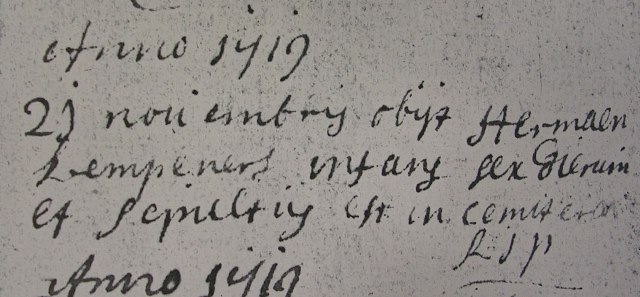 Anno 1719
21 novembris obijt Hermaen
Lempeners infans sex dierum
et sepultus est in cemiterio
RIP
Anno 1719